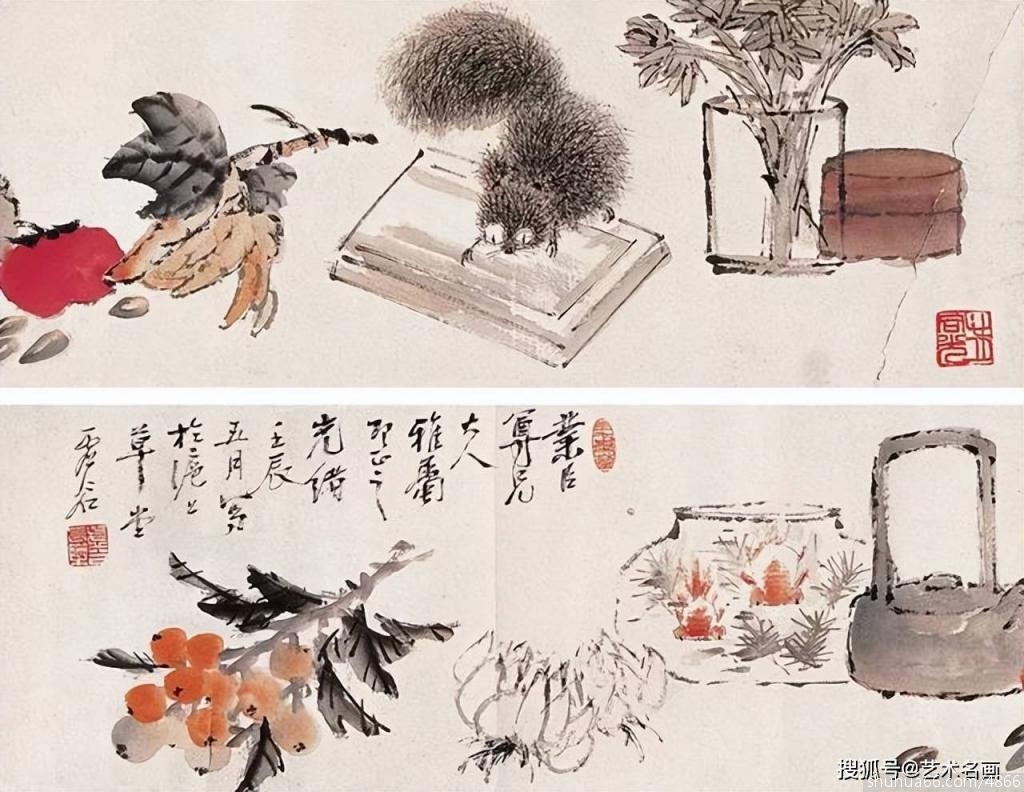 業臣
尊兄
大人
雅屬
即正之
光緒
壬辰
五月寫
於滬上
草堂
虛谷
搜狐号@艺术名画
shuhua66.com/4866